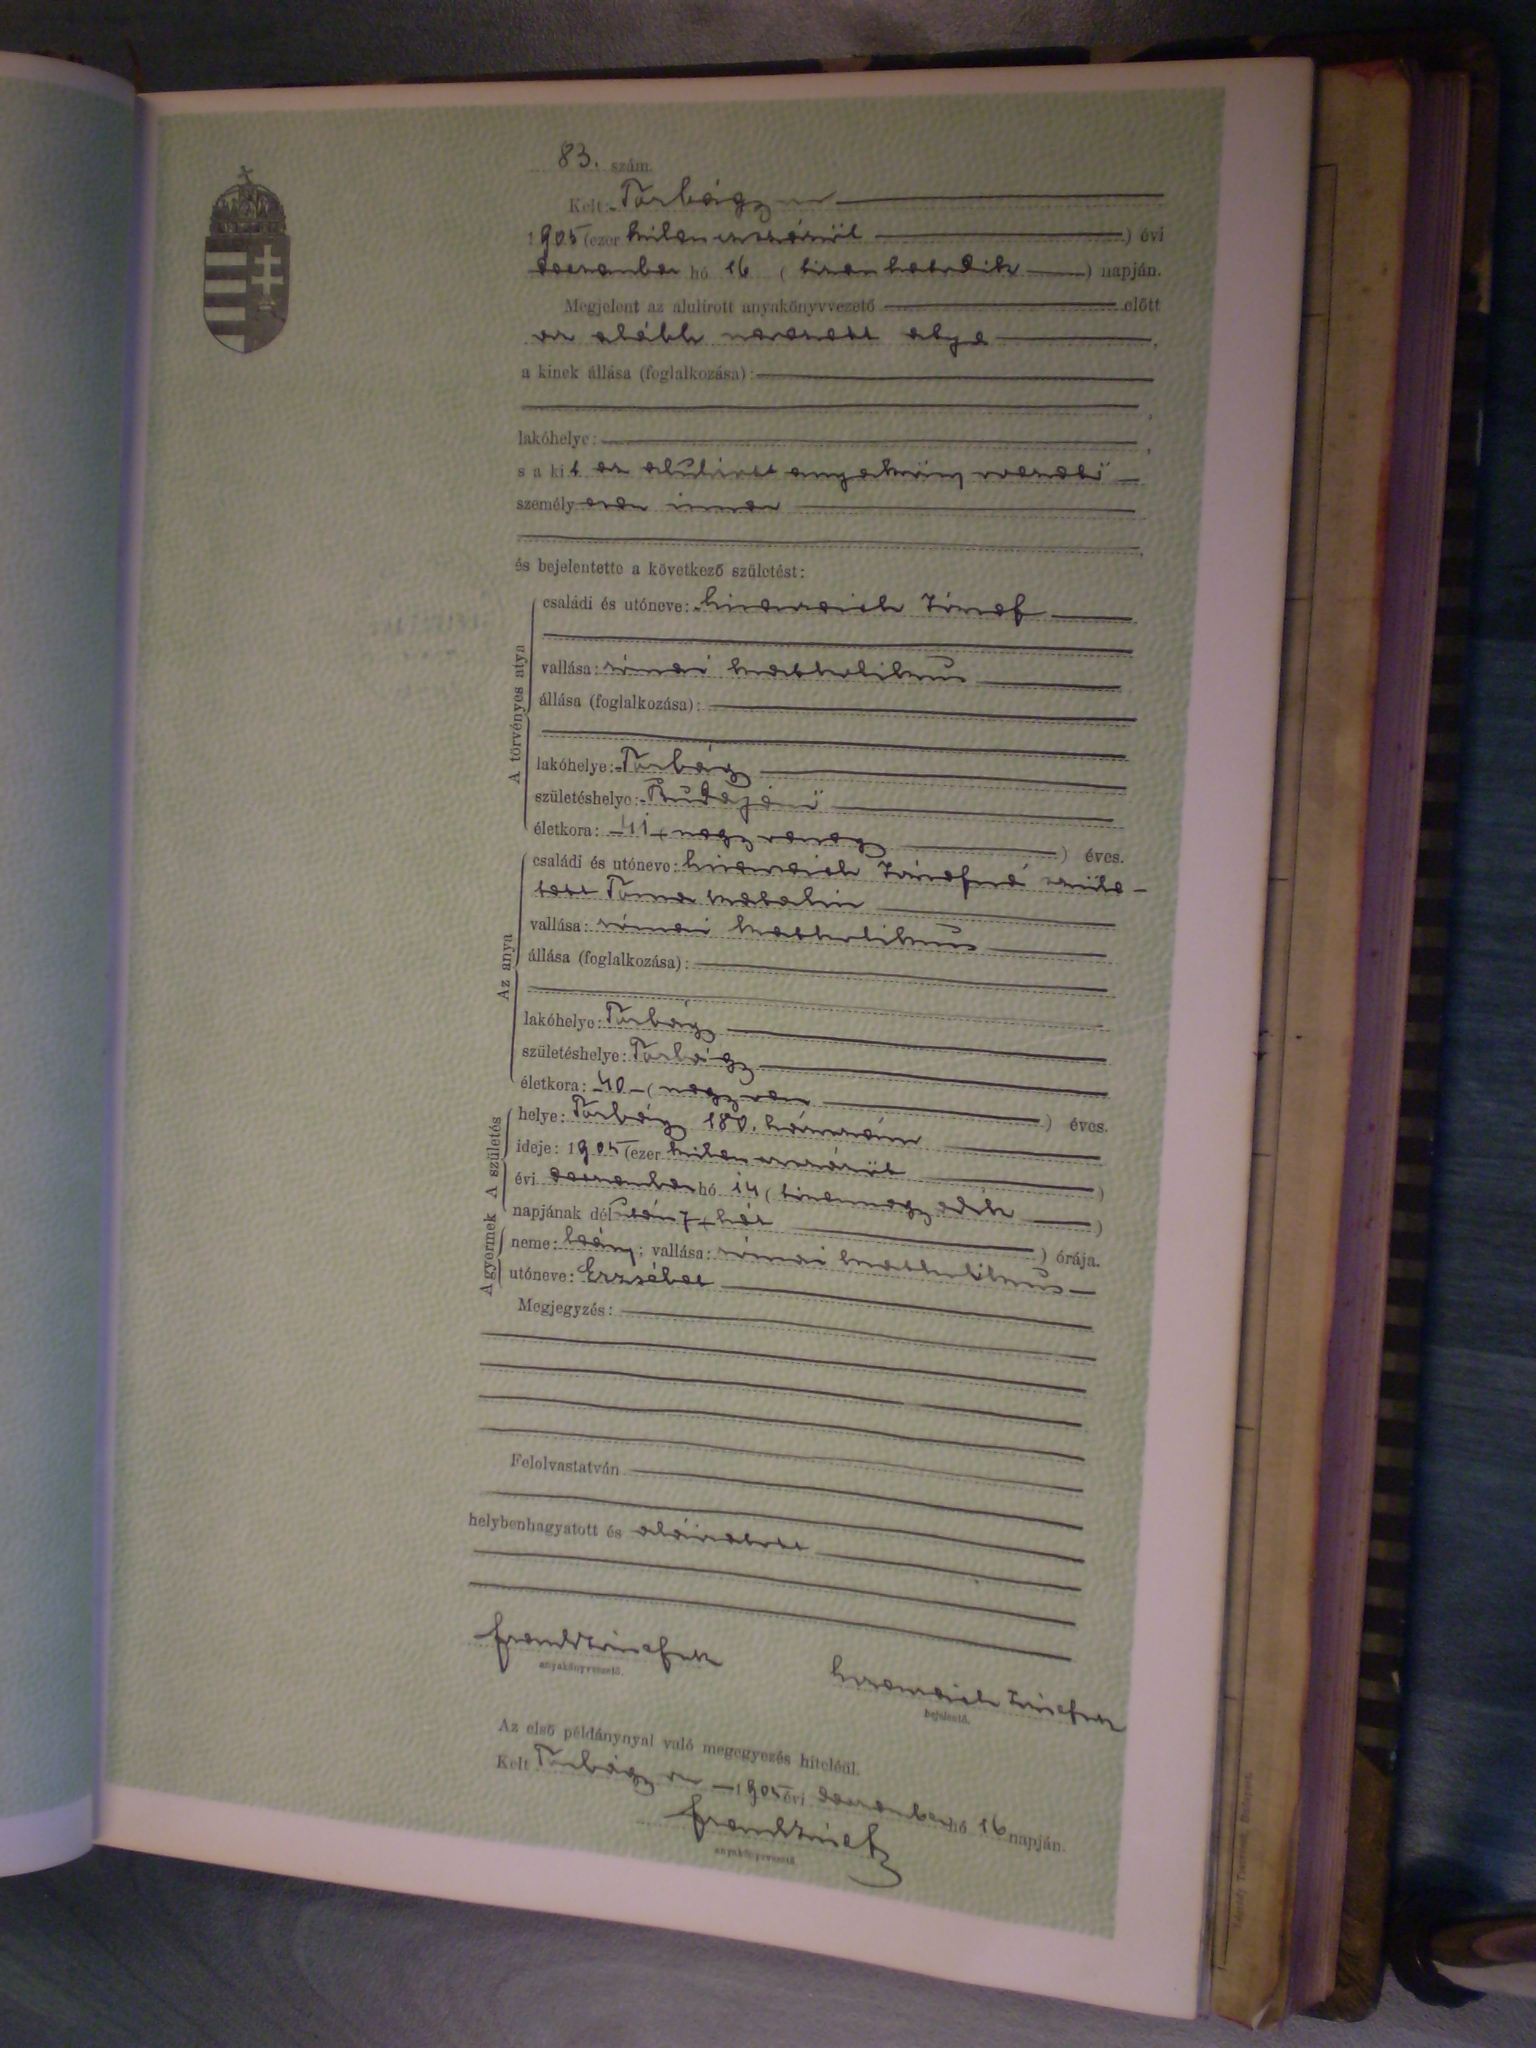 83. szám.
Kelt: Torbágy on
1905 (ezer kilencszázöt) évi
december hó 16 (tizenhatodik) napján.
Megjelent az alulírott anyakönyvvezető előtt
az alább nevezett atya,
a kinek állása (foglalkozása):
lakóhelye:
s a kit az alulírott anyakönyvvezető
személyesen ismer
és bejelentette a következő születést:
A törvényes atya
családi és utóneve: József
vallása: római katholikus
állása (foglalkozása):
lakóhelye: Torbágy
születéshelye: Budajenő
életkora: 41 (negyvenegy) éves.
Az anya
családi és utóneve: Józsefné szüle-
tett Katalin
vallása: római katholikus
állása (foglalkozása):
lakóhelye: Torbágy
születéshelye: Torbágy
életkora: 40 (negyven) éves.
A születés
helye: Torbágy 180. házszám
ideje: 1905 (ezer kilencszázöt)
évi december hó 14 (tizennegyedik)
napjának délután 7 (hét) órája.
A gyermek
neme: leány; vallása: római katholikus
utóneve: Erzsébet
Megjegyzés:
Felolvastatván
helybenhagyatott és aláiratott
anyakönyvvezető.
bejelentő.
Az első példánynyal való megegyezés hiteléül.
Kelt Torbágy on 1905 évi december hó 16 napján.
anyakönyvvezető